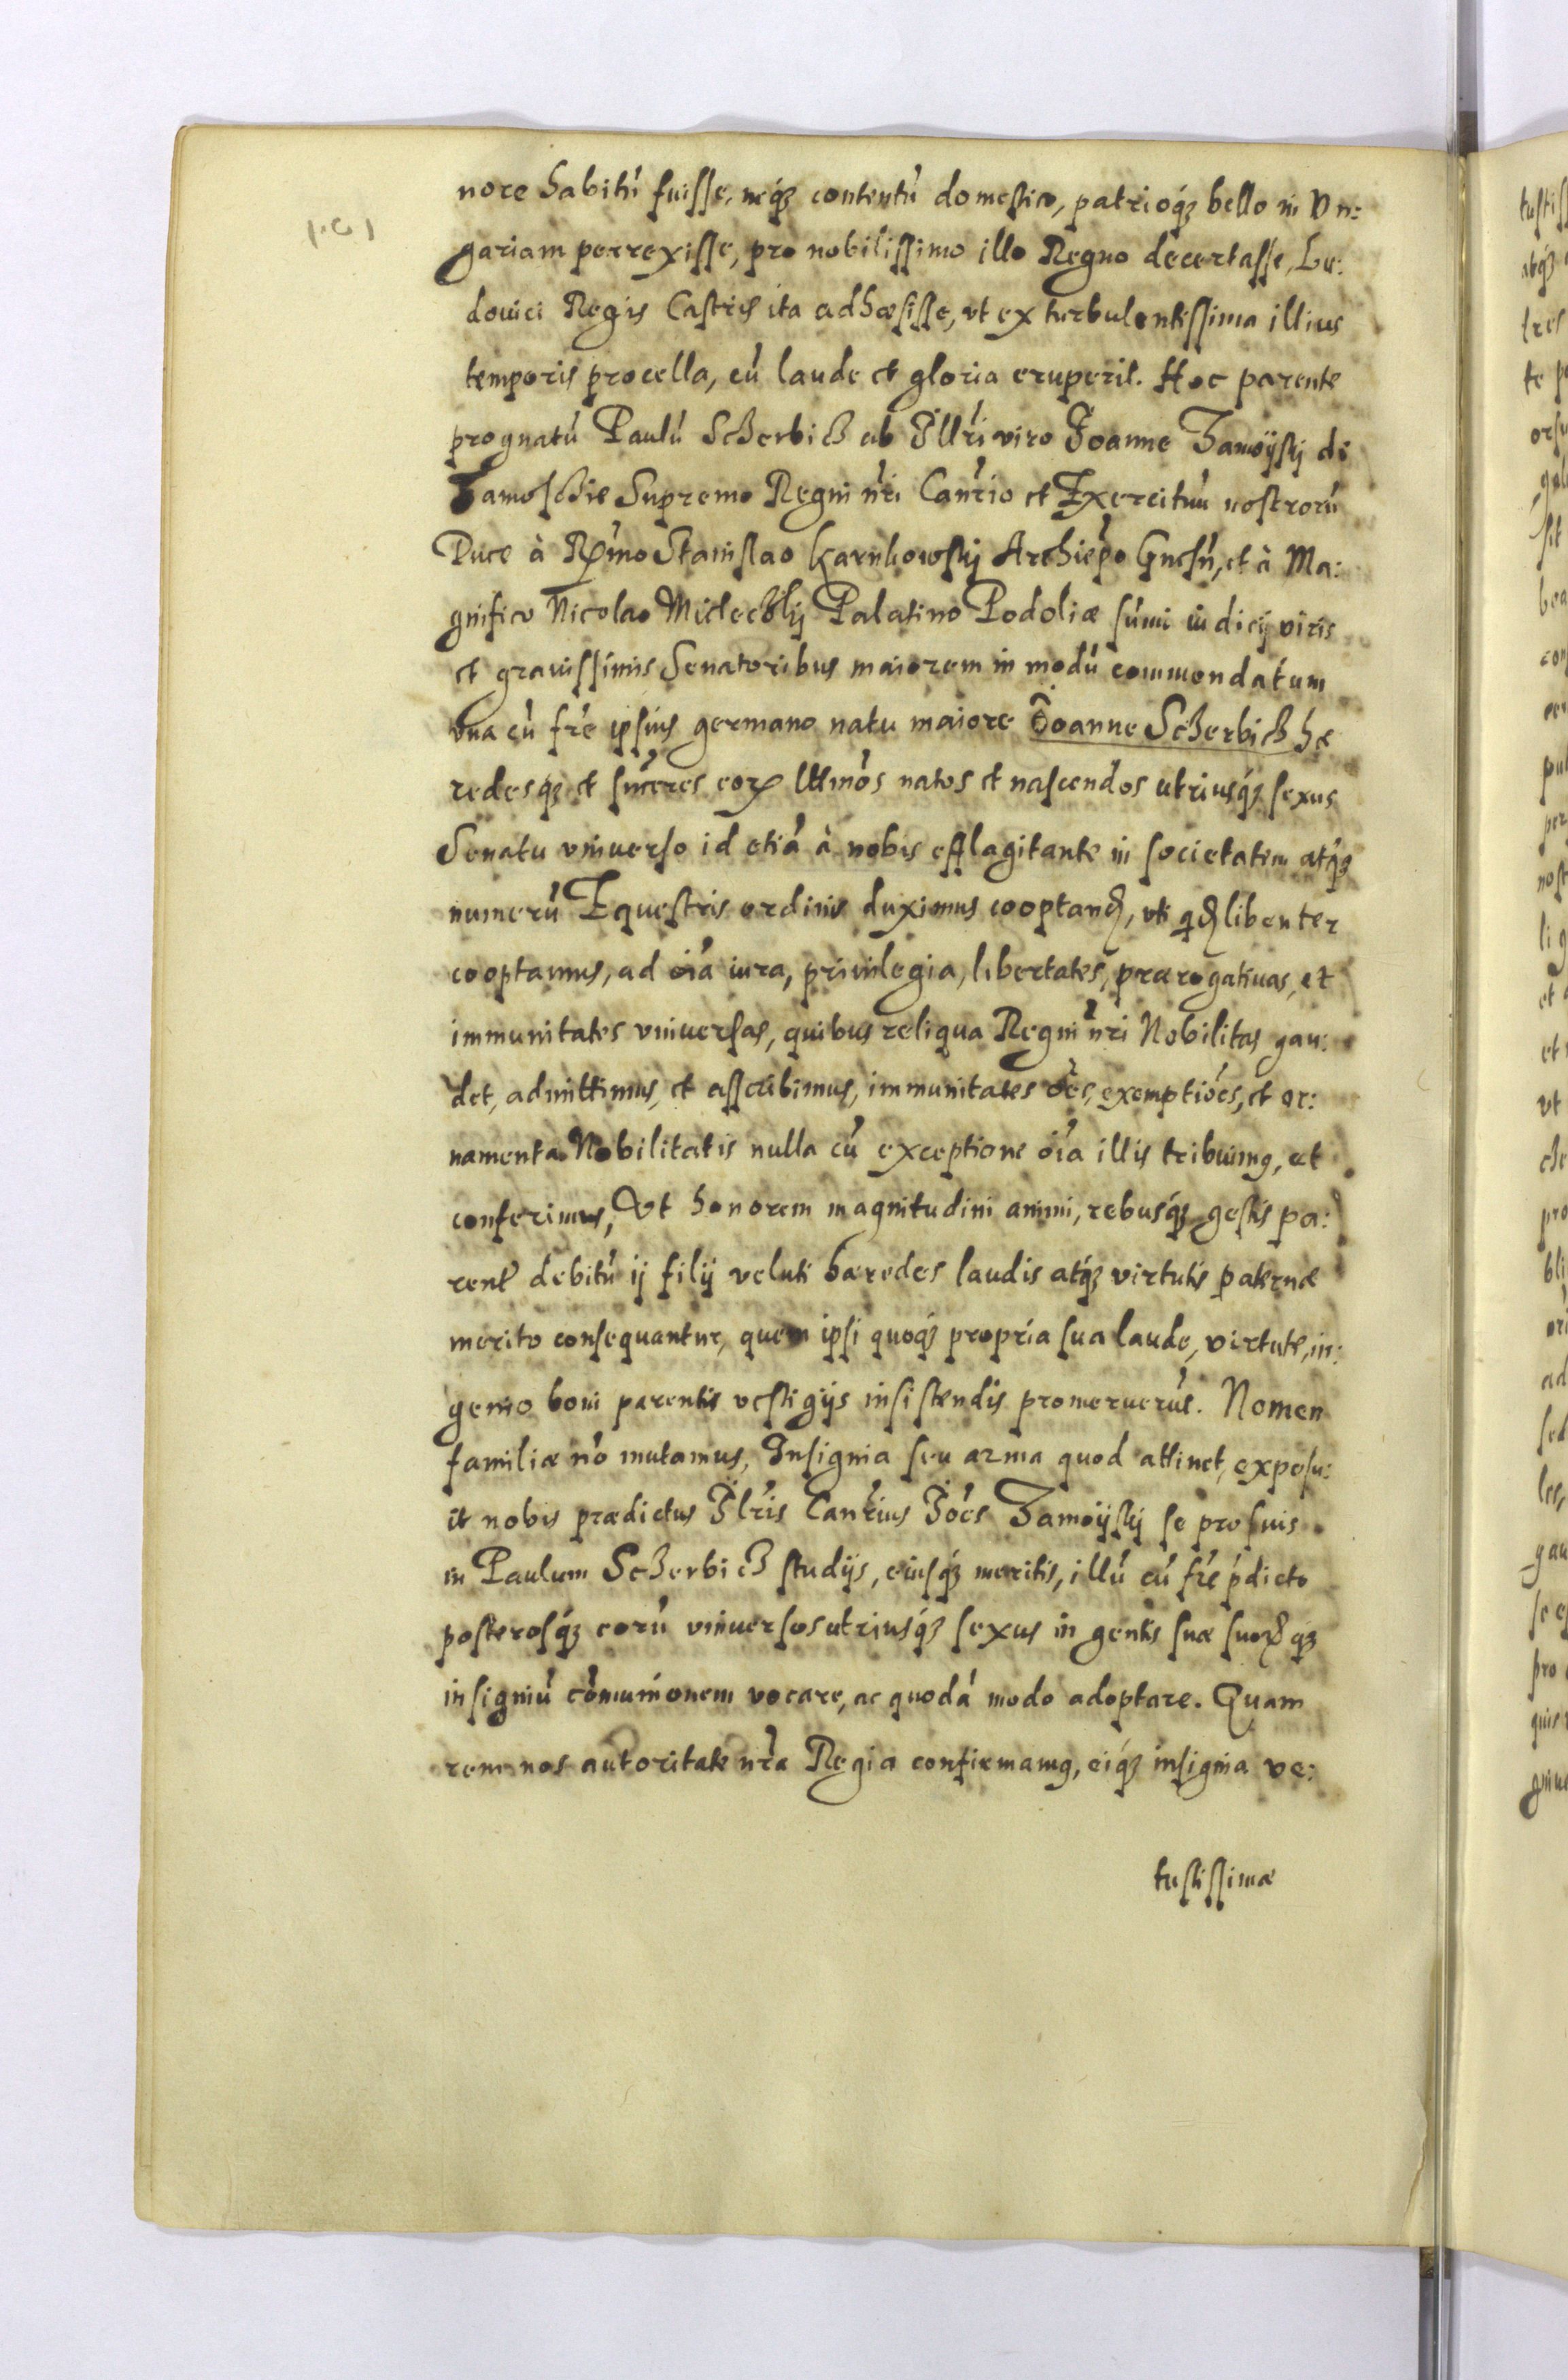 nore habitũ fuisse, neq́ꝫ contentũ domestico, patrioq́ꝫ bello in Vn:
gariam perrexisse, pro nobilissimo illo Regno decertasse, Lu:
douici Regis Castris ita adhæsisse, vt ex turbulentissima illius
temporis procella, cũ laude et gloria eruperit. Hoc parente
prognatũ Paulũ Scherbicz ab Illr̃i viro Joanne Zamoÿskj de
Zamoscie Supremo Regni nr̃i Canr̃io et Exercituũ nostrorũ
Duce à Rm̃o Stanislao Karnkowskij Archiep̃o Gnesñ, et à Ma:
gnifico Nicolao Mieleczkij Palatino Podoliæ sum̃i iudicij viris
et grauissimis Senatoribus maiorem in modũ commendatum
vna cũ fr̃e ipsius germano natu maiore Joanne Scherbicz hæ
redesqꝫ et succr̃es eorꝝ lt̃t̃imos natos et nascendos utriusq́ꝫ sexus
Senatu vniuerso id etiã à nobis efflagitante in societatem atq́ꝫ
numerũ Equestris ordinis duximus cooptanꝺ, vti qꝺ libenter
cooptamus, ad oĩa iura, priuilegia, libertates, prærogatiuas, et
immunitates vniuersas, quibus reliqua Regni nr̃i Nobilitas gau:
det, admittimus, et asscribimus, immunitates oẽs, exemptiões, et or:
namenta Nobilitatis nulla cũ exceptione oĩa illis tribuimꝰ, et
conferimus, Vt honorem magnitudini animi, rebusq́ꝫ gestis pa:
rent̃ debitũ ij filij veluti hæredes laudis atq́ꝫ virtutis paternæ
merito consequantur, quem ipsi quoq́ꝫ propria sua laude, virtute, in:
genio boni parentis vestigijs insistendis promeruerũt. Nomen
familiæ nõ mutamus, Insignia seu arma quod attinet, exposu:
it nobis prædictus Ilr̃is Canr̃ius Joẽs Zamoÿskj se pro suis
in Paulum Scherbicz studijs, eiusq́ꝫ meritis, illũ cũ fr̃e p̃dicto
posterosq́ꝫ eorũ vniuersos utriusq́ꝫ sexus in gentis suæ suorꝝqꝫ
insigniũ com̃unionem vocare, ac quodã modo adoptare. Quam
rem nos autoritate nr̃a Regia confirmamꝰ, eiq́ꝫ insignia ve:
tustissimæ